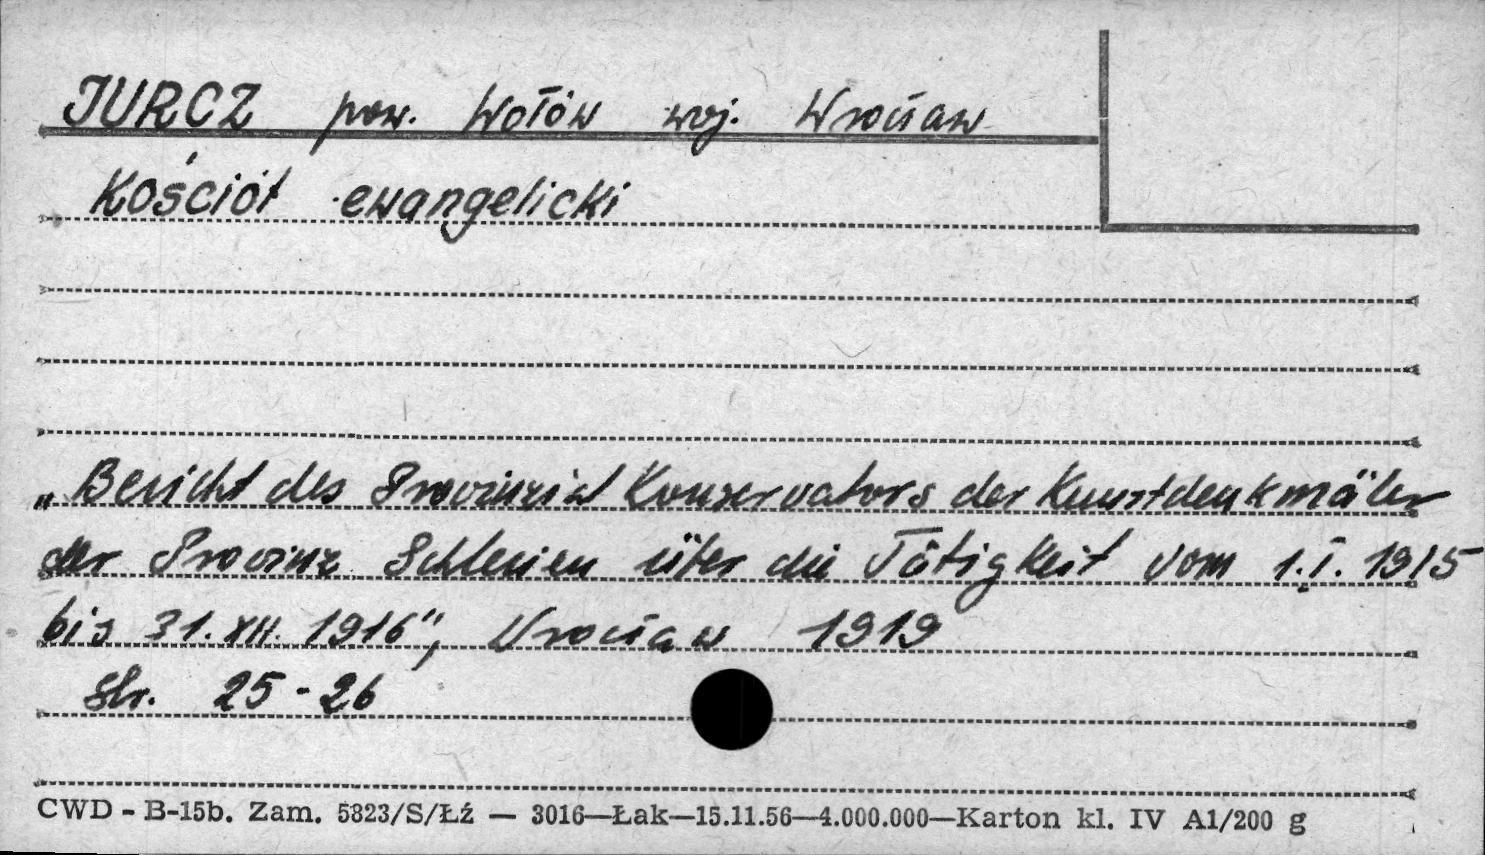 JURCZ pow. Wołów woj. Wrocław
Kościół ewangelicki
„Bericht des Provinzial Konservators der Kunstdenkmäler
der Provinz Schlesien über die Tätigkeit vom 1.I.1915
bis 31.XII.1916", Wrocław 1919
str. 25-26
CWD - B-15b. Zam. 5823/S/Łź — 3016—Łak—15.11.56—4.000.000—Karton kl. IV A1/200 g